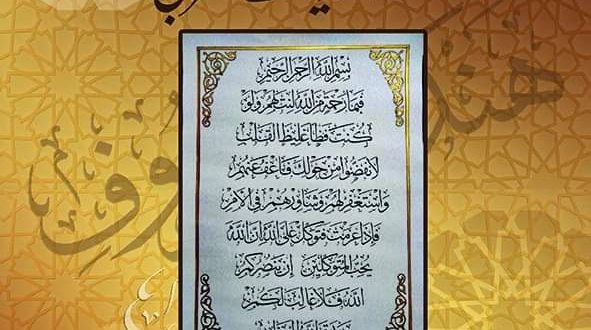 بسم الله الرحمن الرحيم
فبما رحمة من الله لنت لهم ولو
كنت فظا غليظ القلب
لانفضوا من حولك فاعف عنهم
واستغفر لهم وشاورهم في الأمر
فإذا عزمت فتوكل على الله إن الله
يحب المتوكلين إن ينصركم
الله فلا غالب لكم